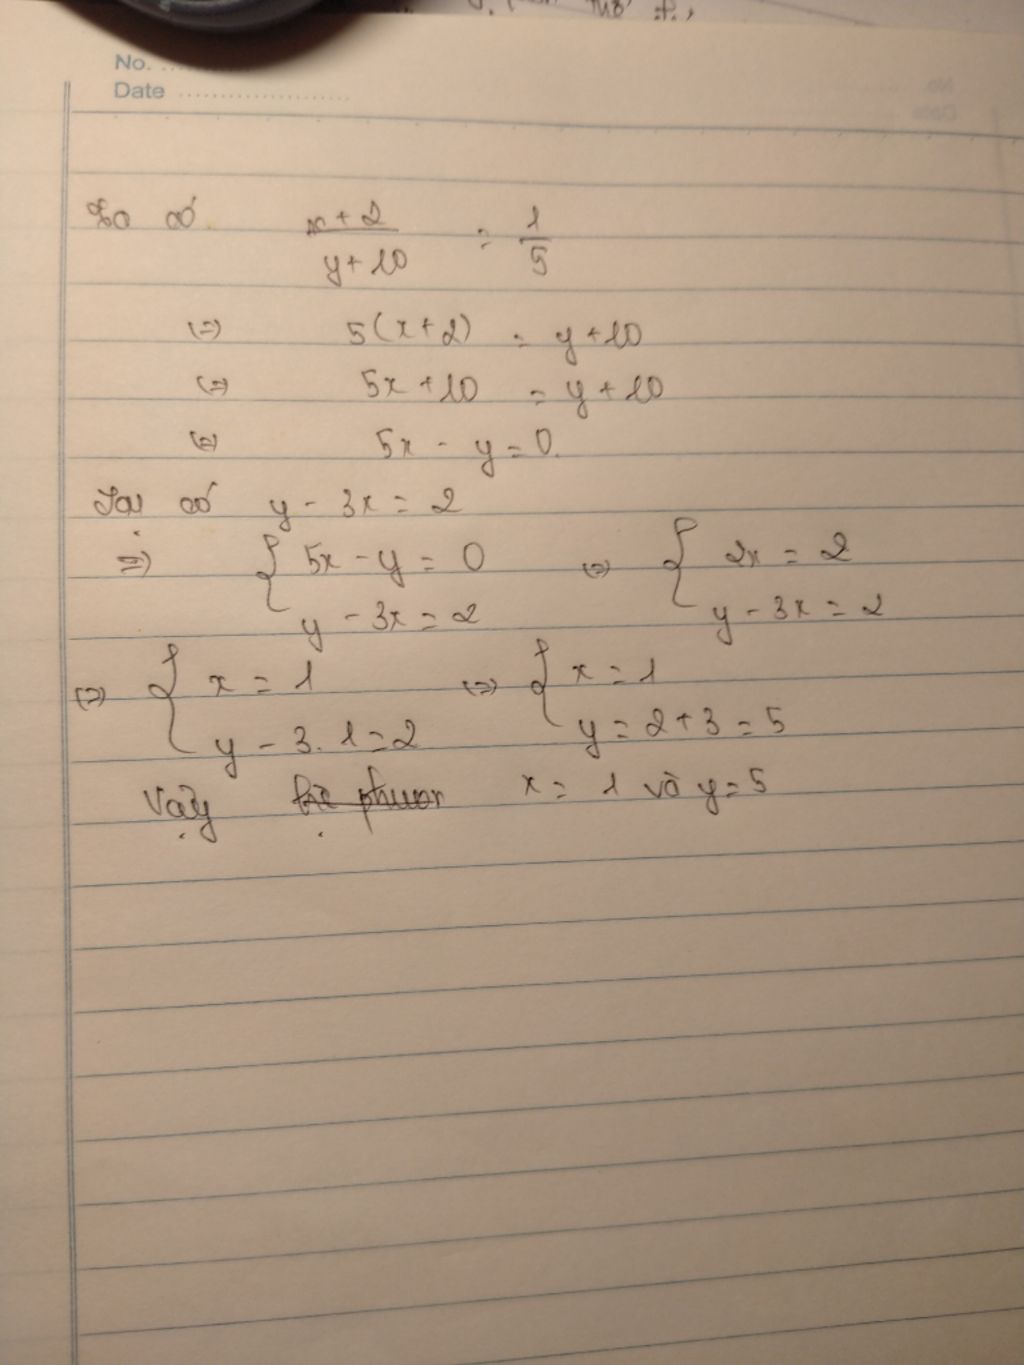 No. ............
Date ......................
Ta có x + 2 / y + 10 = 1 / 5
(=) 5(x + 2) = y + 10
(=) 5x + 10 = y + 10
(=) 5x - y = 0.
Lại có y - 3x = 2
=) { 5x - y = 0 (=) { 2x = 2
y - 3x = 2 y - 3x = 2
(=) { x = 1 (=) { x = 1
y - 3. 1 = 2 y = 2 + 3 = 5
Vậy x = 1 và y = 5